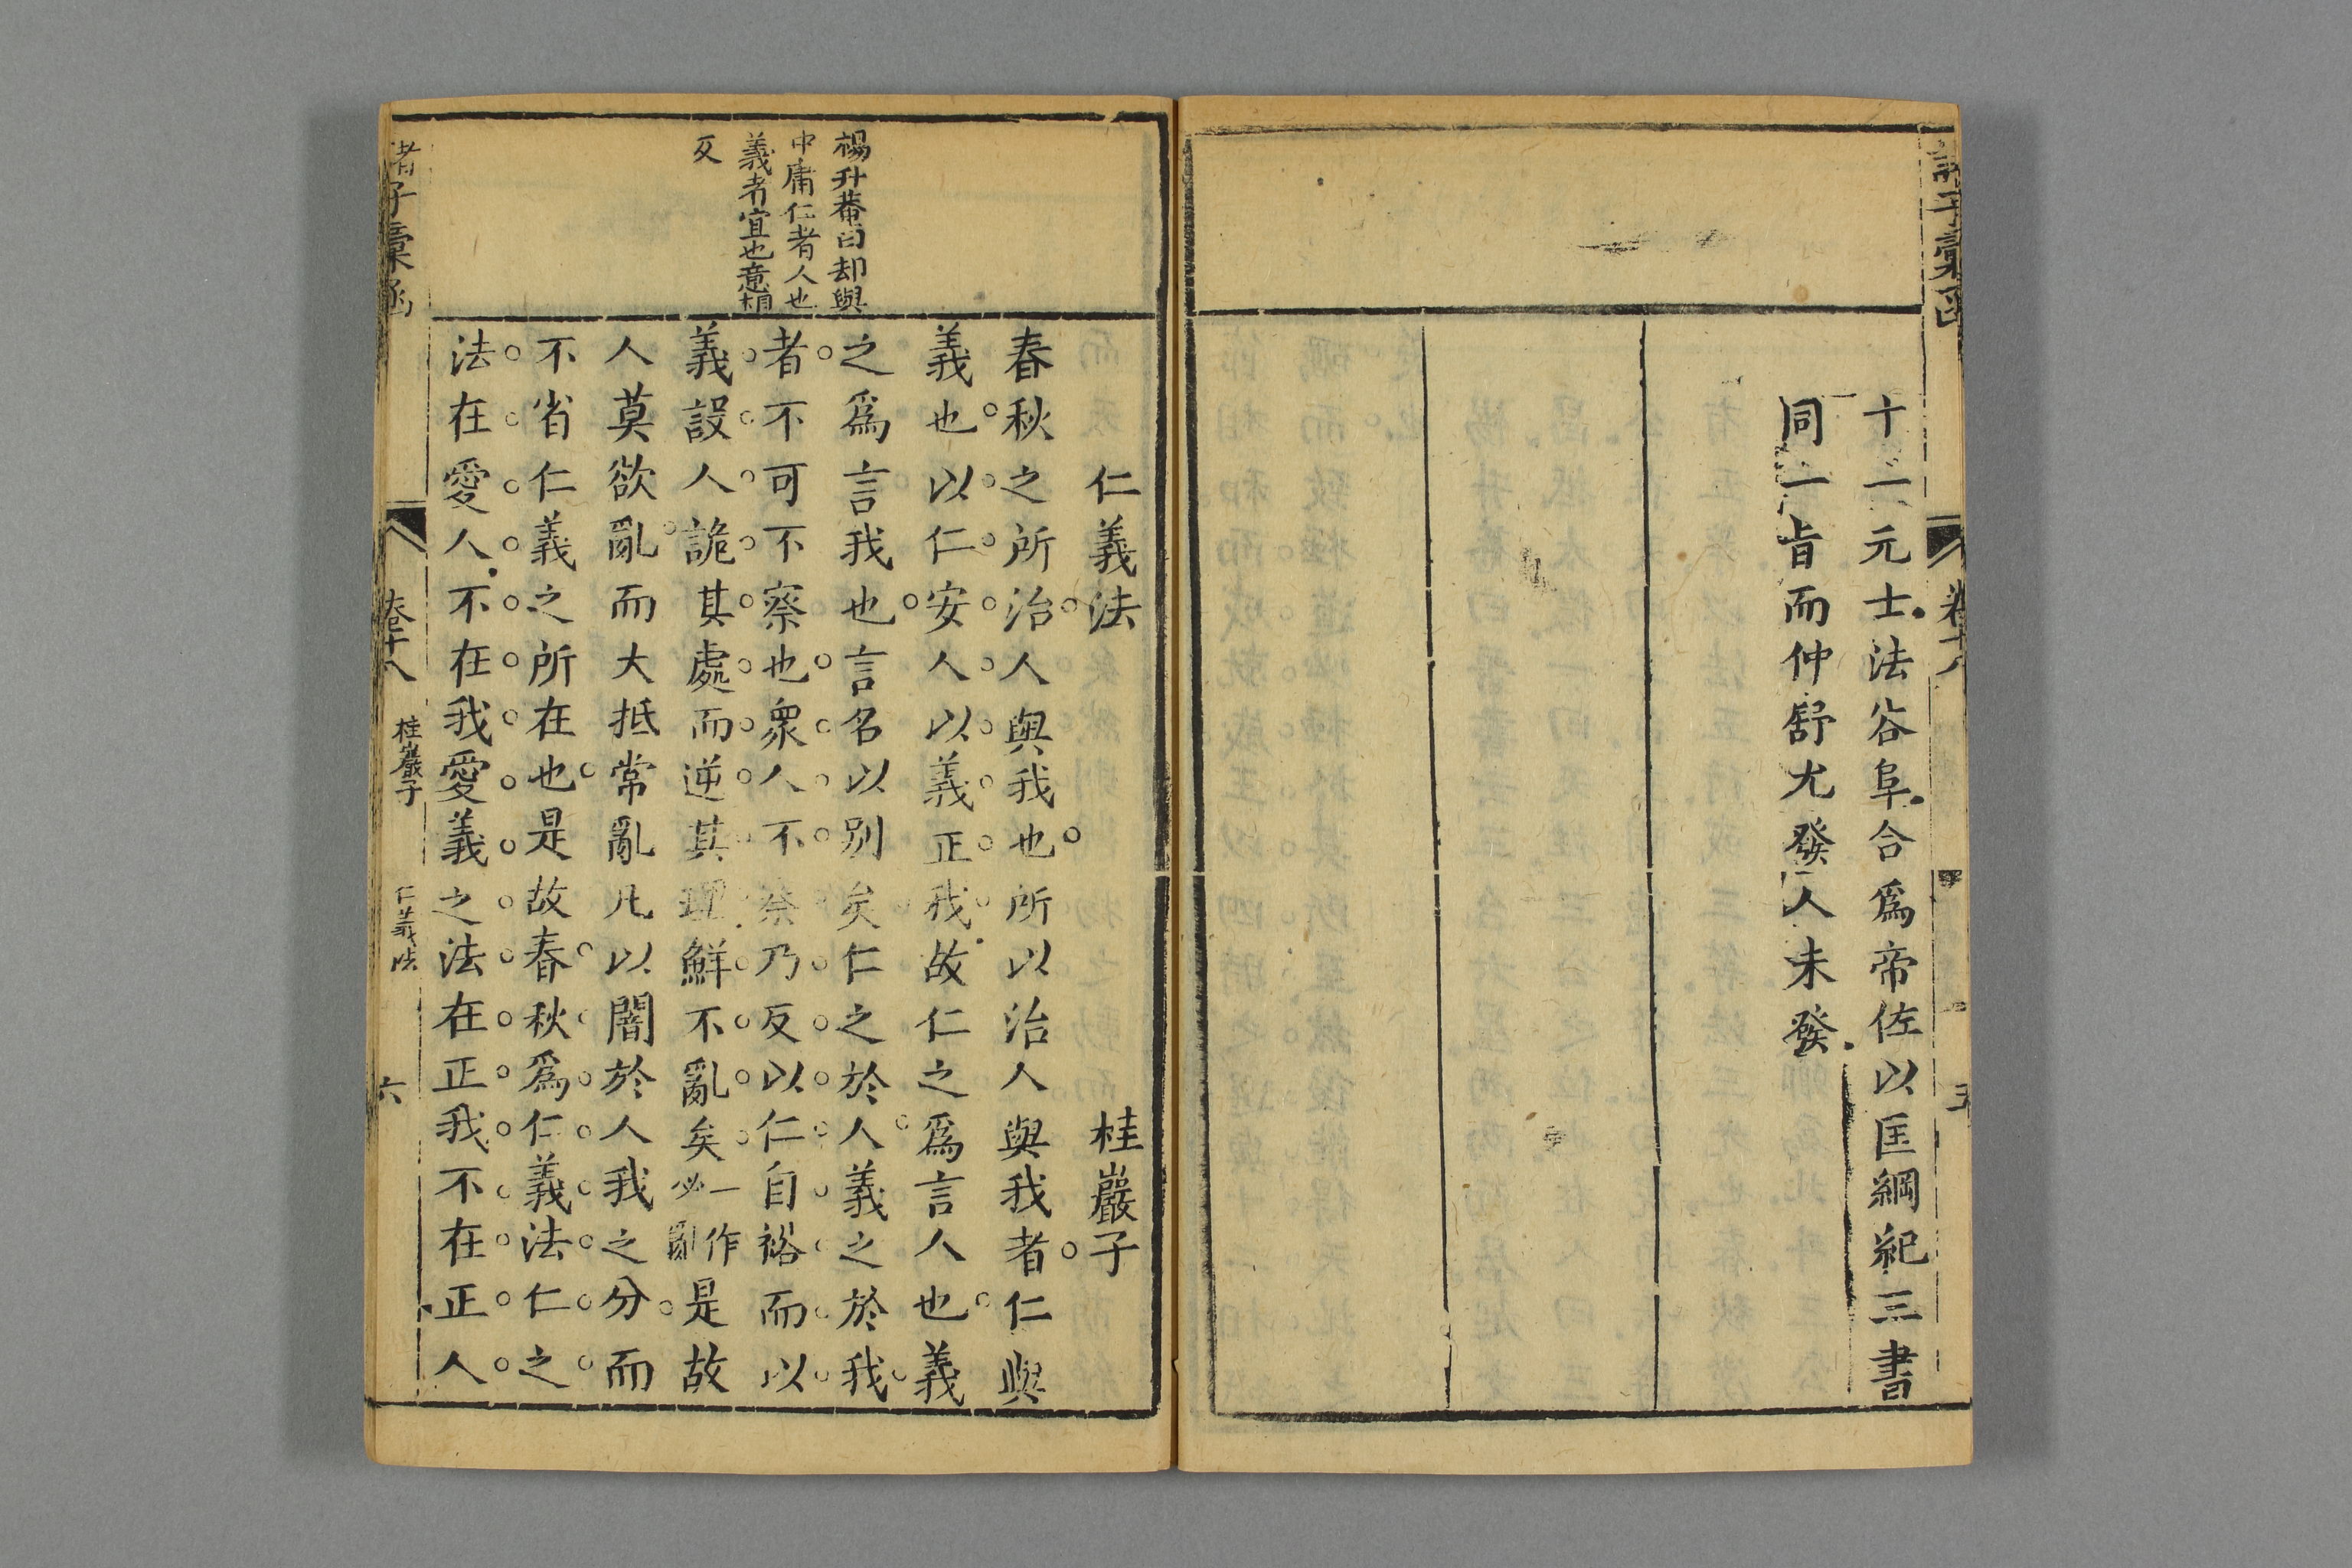 十二元士法谷阜合爲帝佐以匡綱紀三書
同一旨而仲舒尤發人未發
卷十八
五
楊升菴曰却與
中庸仁者人也
義者宜也意相
反
仁義法 桂巖子
春秋之所治人與我也所以治人與我者仁與
義也以仁安人以義正我故仁之爲言人也義
之爲言我也言名以别矣仁之於人義之於我
者不可不察也衆人不察乃反以仁自裕而以
義設人詭其處而逆其理鮮不亂矣一作必亂是故
人莫欲亂而大抵常亂凡以闇於人我之分而
不省仁義之所在也是故春秋爲仁義法仁之
法在愛人不在我愛義之法在正我不在正人
諸子彙函
卷十八
桂巖子
仁義法
六